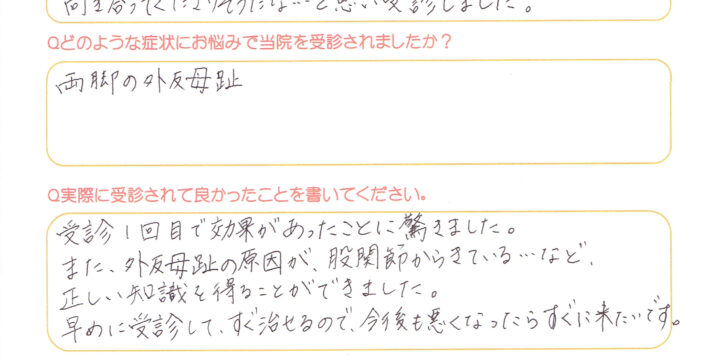 向き合ってくださりそうだな…と思い受診しました。
Qどのような症状にお悩みで当院を受診されましたか？
両脚の外反母趾
Q実際に受診されて良かったことを書いてください。
受診1回目で効果があったことに驚きました。
また、外反母趾の原因が、股関節からきている…など、
正しい知識を得ることができました。
早めに受診して、すぐ治せるので、今後も悪くなったらすぐに来たいです。